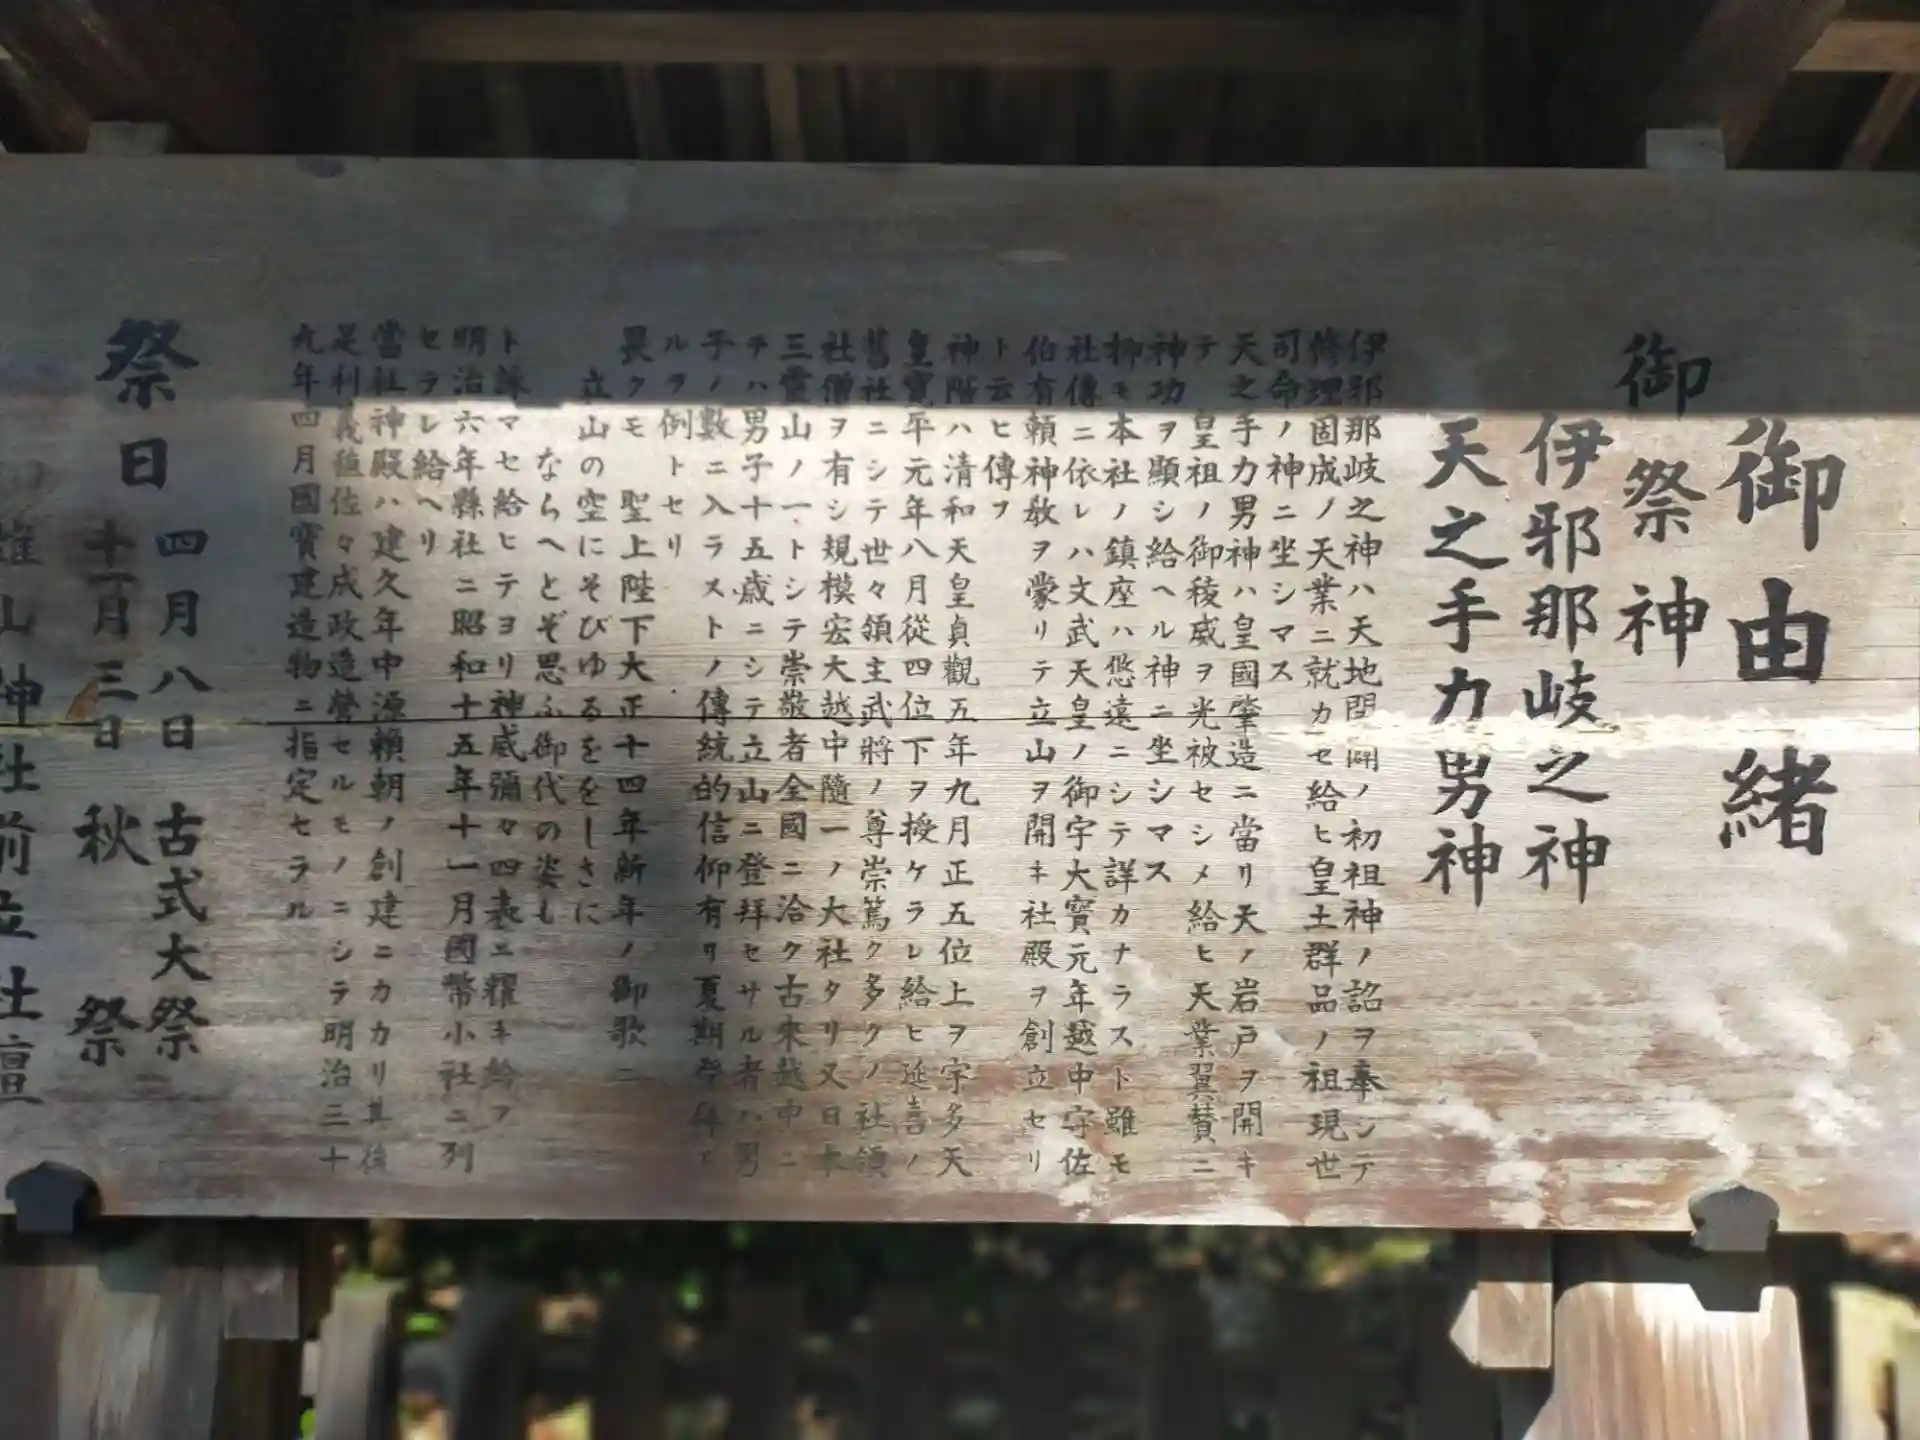 御由緒
御祭神
伊邪那岐之神
天之手力男神
伊邪那岐之神ハ天地開闢ノ初祖神ノ詔ヲ奉シテ
修理固成ノ天業ニ就カセ給ヒ皇土群品ノ祖現世
司命ノ神ニ坐シマス
天之手力男神ハ皇國肇造ニ當リ天ノ岩戸ヲ開キ
テ皇祖ノ御稜威ヲ光被セシメ給ヒ天業翼賛ニ
神功ヲ顯シ給ヘル神ニ坐シマス
抑モ本社ノ鎮座ハ悠遠ニシテ詳カナラスト雖モ
社傳ニ依レハ文武天皇ノ御宇大寳元年越中守佐
伯有頼神敎ヲ蒙リテ立山ヲ開キ社殿ヲ創立セリ
ト云ヒ傳フ
神階ハ清和天皇貞觀五年九月正五位上ヲ宇多天
皇寛平元年八月從四位下ヲ授ケラレ給ヒ延喜ノ
舊社ニシテ世々領主武將ノ尊崇篤ク多クノ社領
社僧ヲ有シ規模宏大越中隨一ノ大社タリ又日本
三靈山ノ一トシテ崇敬者全國ニ洽ク古來越中ニ
テハ男子十五歳ニシテ立山ニ登拜セサル者ハ男
子ノ數ニ入ラストノ傳統的信仰有リ夏期登拜セ
ルヲ例トセリ
畏クモ 聖上陛下大正十四年新年ノ御歌ニ
立山の空にそびゆるををしさに
ならへとぞ思ふ御代の姿も
ト詠マセ給ヒテヨリ神威彌々四表ニ耀キ給フ
明治六年縣社ニ昭和十五年十一月國幣小社ニ列
セラレ給ヘリ
當社神殿ハ建久年中源頼朝ノ創建ニカカリ其後
足利義稙佐々成政造營セルモノニシテ明治三十
九年四月國寳建造物ニ指定セラル
祭日
四月八日 古式大祭
十一月三日 秋祭
雄山神社前立社壇